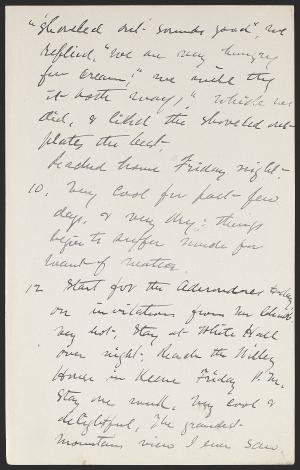 "shoveled out sounds good", we
replied, "we are very hungry
for cream;" "we will try
it both ways;" which we
did, & liked the shoveled out
plates the best.
Reached home Friday night.
10. Very cool for past few
days, & very dry; things
begin to suffer much for
want of water.
12 Start for the Adirondacs today
on invitations from Mr
very hot, Stay at White Hall
over night; Reach the Willey
House in Keene Friday P.M.
Stay one week. Very cool &
delightful, The grandest
mountain view I ever saw.